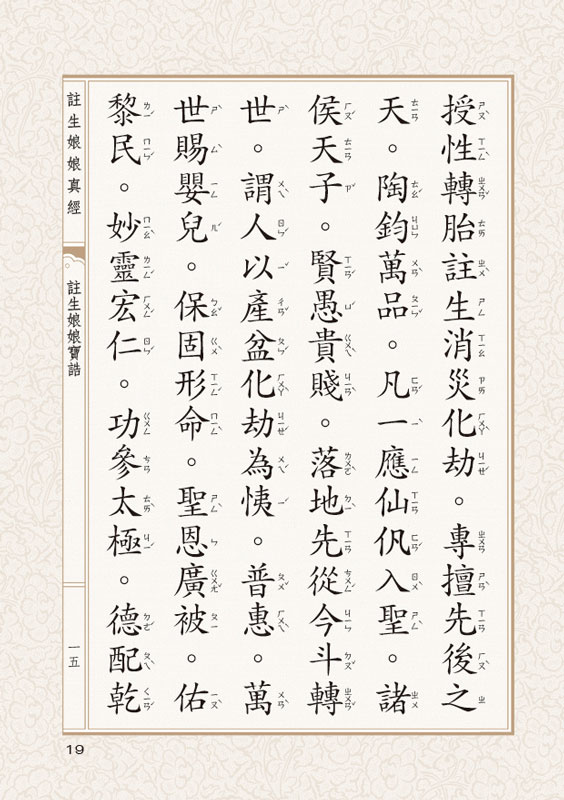 授性轉胎註生消災化劫。專擅先後之
天。陶鈞萬品。凡一應仙入聖。諸
侯天子。賢愚貴賤。落地先從今斗轉
世。謂人以產盆化劫為恞。普惠。萬
世賜嬰兒。保固形命。聖恩廣被。佑
黎民。妙靈宏仁。功參太極。德配乾
註生娘娘真經
註生娘娘寶誥
一五
19